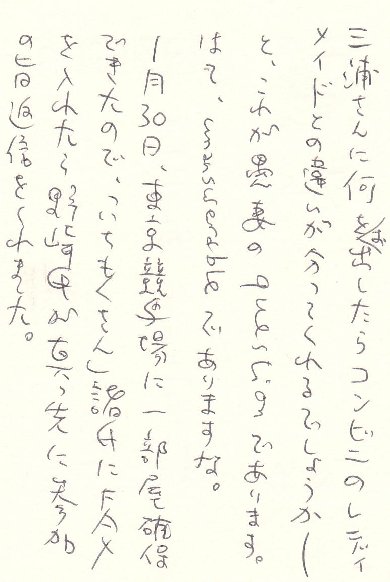 三浦さんに何を出したらコンビニのレディ
メイドとの違いが分ってくれるでしょうか—
と、これが愚妻のquestionであります。
はて、unanswerableでありますな。
1月30日、東京競馬場に一部屋確保
できたので、「いちもくさん」諸氏にFAX
を入れたら野崎氏が真っ先に参加
の旨返信をくれました。